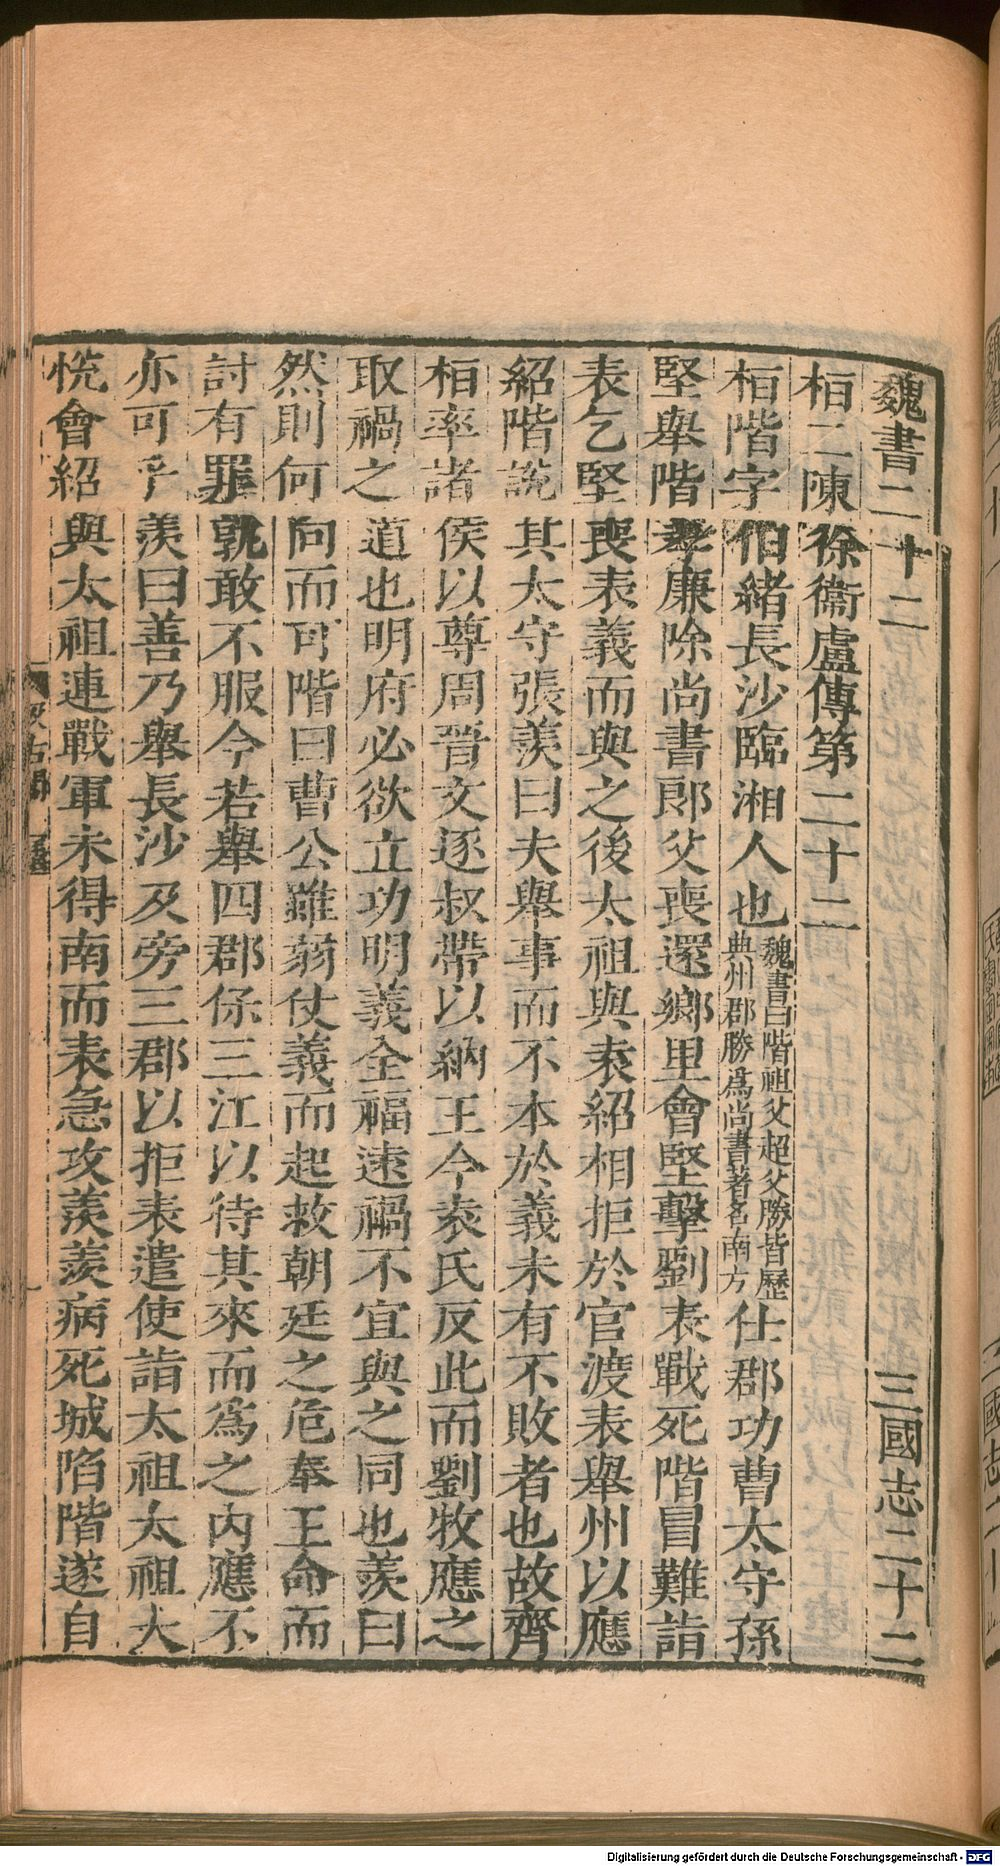 魏書二十二　三國志二十二
桓二陳徐衞盧傳第二十二
桓階字伯緒長沙臨湘人也魏書曰階祖父超父勝皆歷典州郡勝爲尚書著名南方仕郡功曹太守孫
堅舉階孝廉除尚書郎父喪還鄉里會堅擊劉表戰死階冒難詣
表乞堅喪表義而與之後太祖與袁紹相拒於官渡表舉州以應
紹階說其太守張羨曰夫舉事而不本於義未有不敗者也故齊
桓率諸侯以尊周晉文逐叔帶以納王今袁氏反此而劉牧應之
取禍之道也明府必欲立功明義全福遠禍不宜與之同也羨曰
然則何向而可階曰曹公雖弱仗義而起救朝廷之危奉王命而
討有罪孰敢不服今若舉四郡保三江以待其來而爲之內應不
亦可乎羨曰善乃舉長沙及旁三郡以拒表遣使詣太祖太祖大
恱會紹與太祖連戰軍未得南而表急攻羨羨病死城陷階遂自
Digitalisierung gefördert durch die Deutsche Forschungsgemeinschaft - DFG